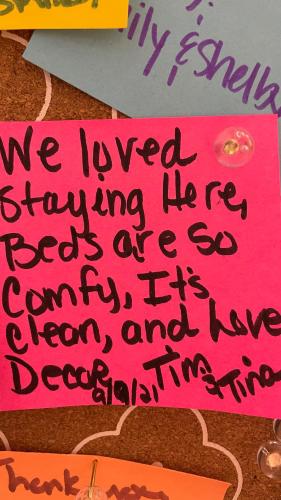 ily & Shelby
We loved
Staying Here,
Beds are so
Comfy, It's
clean, and Love
Decor
9/9/21 Tim
& Tina
Thank